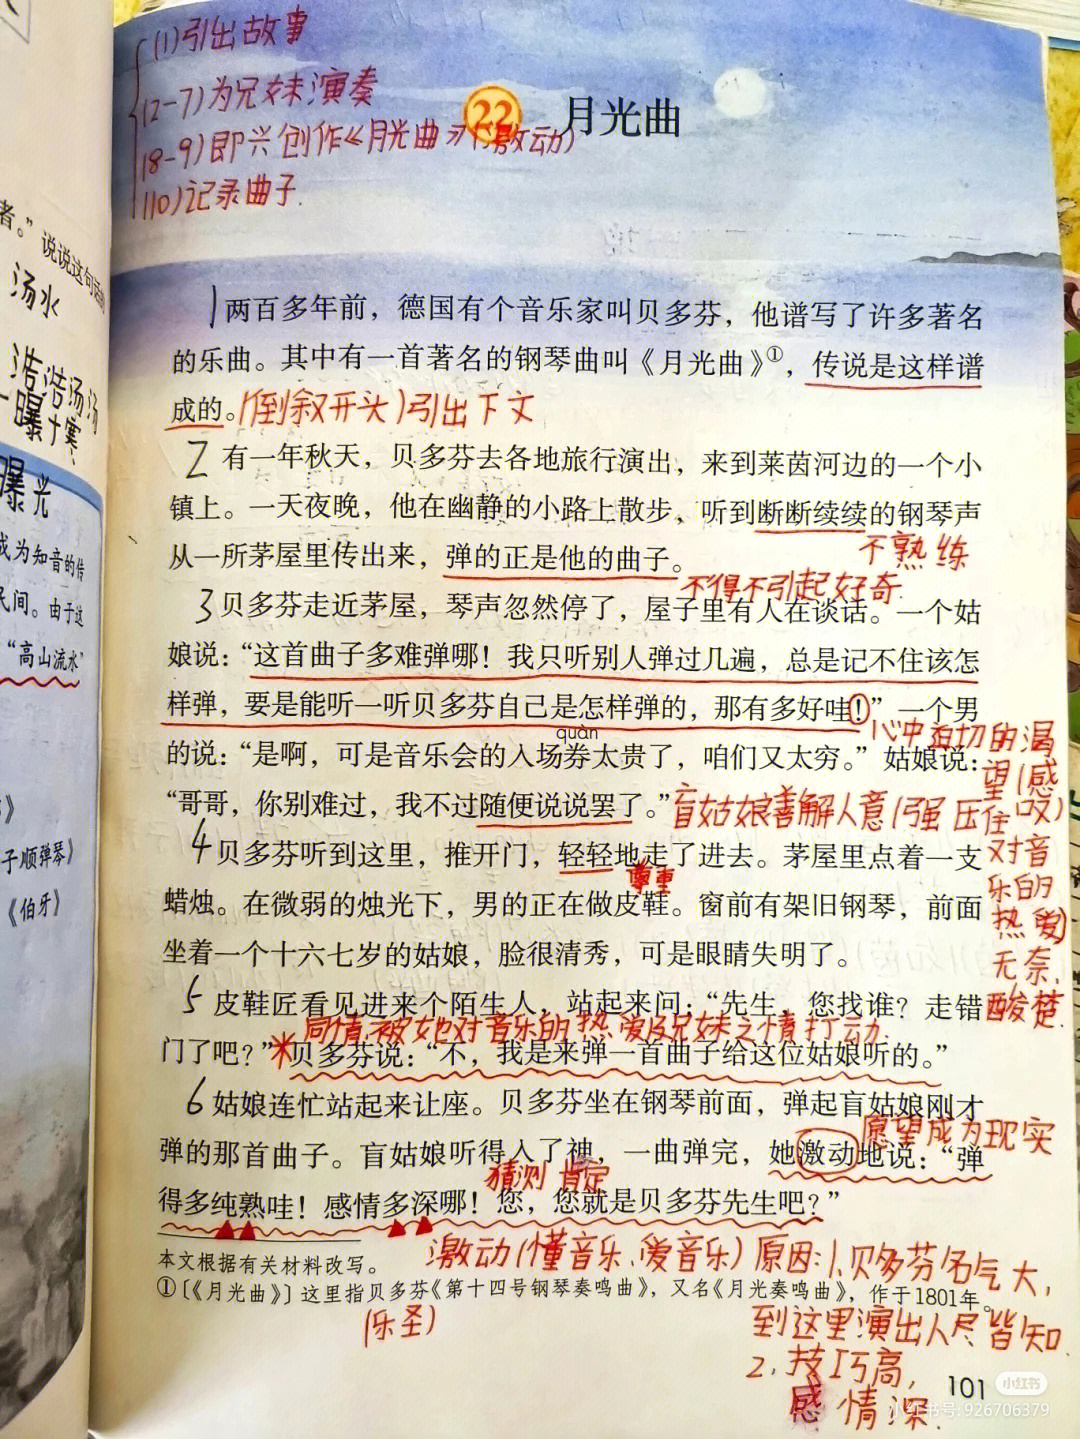 (1)引出故事
(2-7)为兄妹演奏
(8-9)即兴创作《月光曲》(激动)
(10)记录曲子.
22 月光曲
者。”说说这句话的
汤水
浩浩汤汤
一曝十寒、
曝光
成为知音的传
民间。由于这
“高山流水”
》
子顺弹琴》
《伯牙》
1 两百多年前，德国有个音乐家叫贝多芬，他谱写了许多著名
的乐曲。其中有一首著名的钢琴曲叫《月光曲》①，传说是这样谱
成的。(倒叙开头)引出下文
2 有一年秋天，贝多芬去各地旅行演出，来到莱茵河边的一个小
镇上。一天夜晚，他在幽静的小路上散步，听到断断续续的钢琴声
从一所茅屋里传出来，弹的正是他的曲子。
不熟练
不得不引起好奇
3 贝多芬走近茅屋，琴声忽然停了，屋子里有人在谈话。一个姑
娘说：“这首曲子多难弹哪！我只听别人弹过几遍，总是记不住该怎
样弹，要是能听一听贝多芬自己是怎样弹的，那有多好哇！”一个男
quàn
的说：“是啊，可是音乐会的入场券太贵了，咱们又太穷。”姑娘说：
“哥哥，你别难过，我不过随便说说罢了。”
心中迫切的渴
望(感
叹)
对音
乐的
热爱)
盲姑娘善解人意(强压住
无奈、
酸楚.
4 贝多芬听到这里，推开门，轻轻地走了进去。茅屋里点着一支
尊重
蜡烛。在微弱的烛光下，男的正在做皮鞋。窗前有架旧钢琴，前面
坐着一个十六七岁的姑娘，脸很清秀，可是眼睛失明了。
5 皮鞋匠看见进来个陌生人，站起来问：“先生，您找谁？走错
同情.被她对音乐的热爱及兄妹之情打动.
门了吧？”贝多芬说：“不，我是来弹一首曲子给这位姑娘听的。”
6 姑娘连忙站起来让座。贝多芬坐在钢琴前面，弹起盲姑娘刚才
愿望成为现实
弹的那首曲子。盲姑娘听得入了神，一曲弹完，她激动地说：“弹
猜测 肯定
得多纯熟哇！感情多深哪！您，您就是贝多芬先生吧？”
激动(懂音乐、爱音乐)原因:1.贝多芬名气大,
到这里演出人尽皆知.
2.技巧高,
感情深.
本文根据有关材料改写。
①〔《月光曲》〕这里指贝多芬《第十四号钢琴奏鸣曲》，又名《月光奏鸣曲》，作于1801年。
(乐圣)
101
小红书
小红书号:926706379